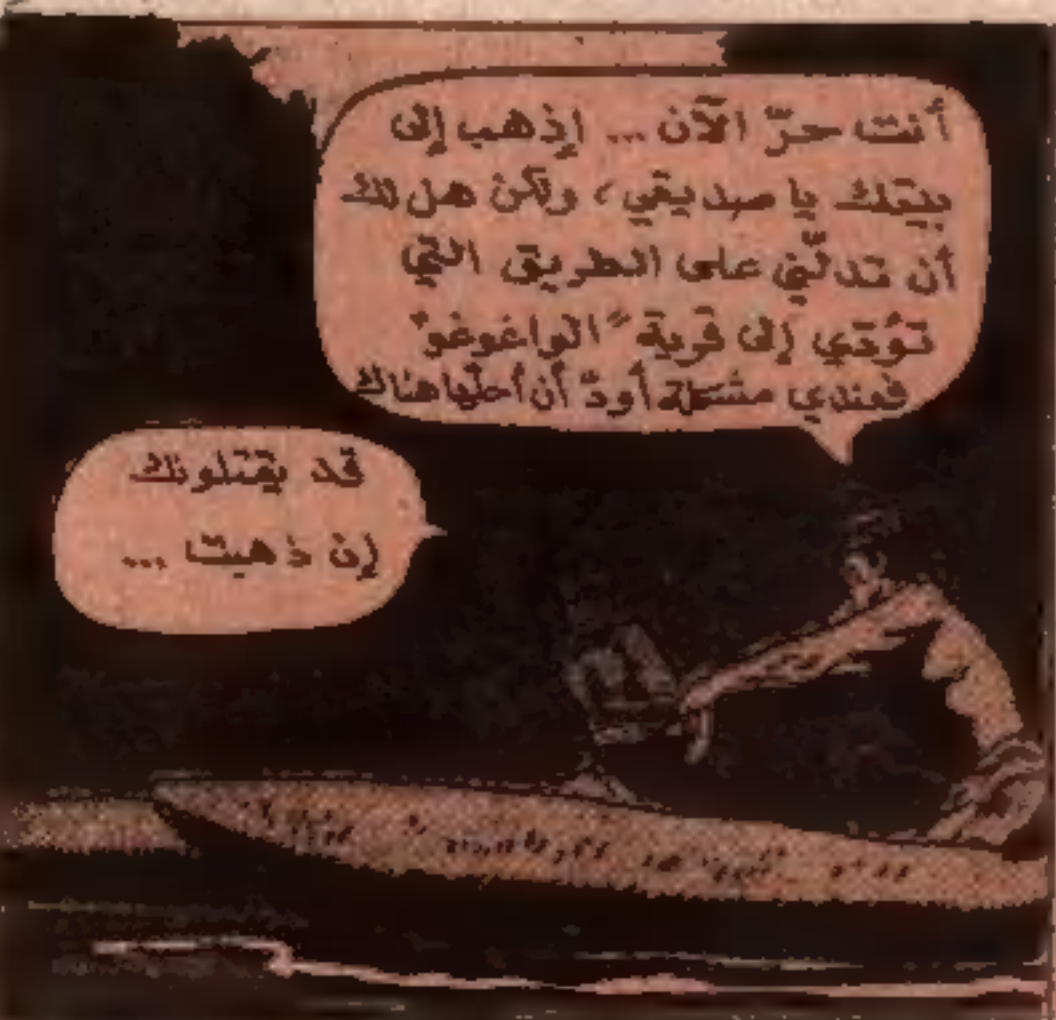 أنت حرّ الآن ... إذهب إلى
بيتك يا صديقي، ولكن هل لك
أن تدلّني على الطريق التي
تؤدي إلى قرية "الواغوغو"
فعندي مشكلة أودّ أن أحلّها هناك
قد يقتلونك
إن ذهبت ...